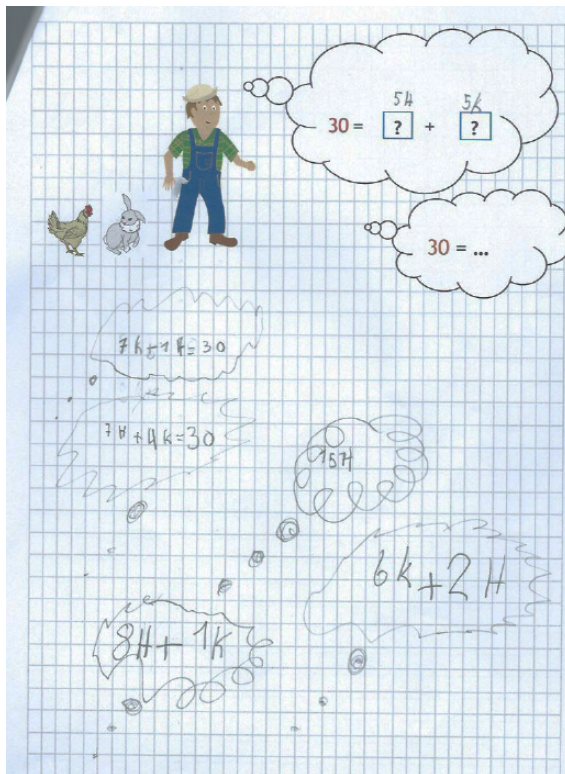 5H 5K
30 = ? + ?
30 = ...
7K+1H=30
7H+4K=30
15H
6K+2H
8H+1K